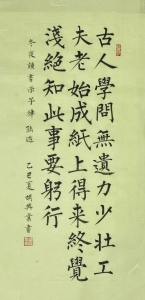 古人學問無遺力少壯工
夫老始成紙上得來終覺
淺絕知此事要躬行
冬夜讀書示子 陸游
乙巳夏 書